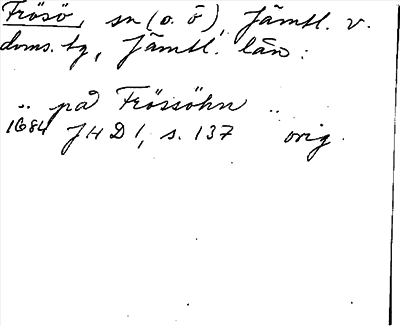 Frösö, sn (o. ö), Jämtl. v.
doms. tg, Jämtl. län:
.. på Frössöhn ..
1684 JHD 1, s. 137 orig.